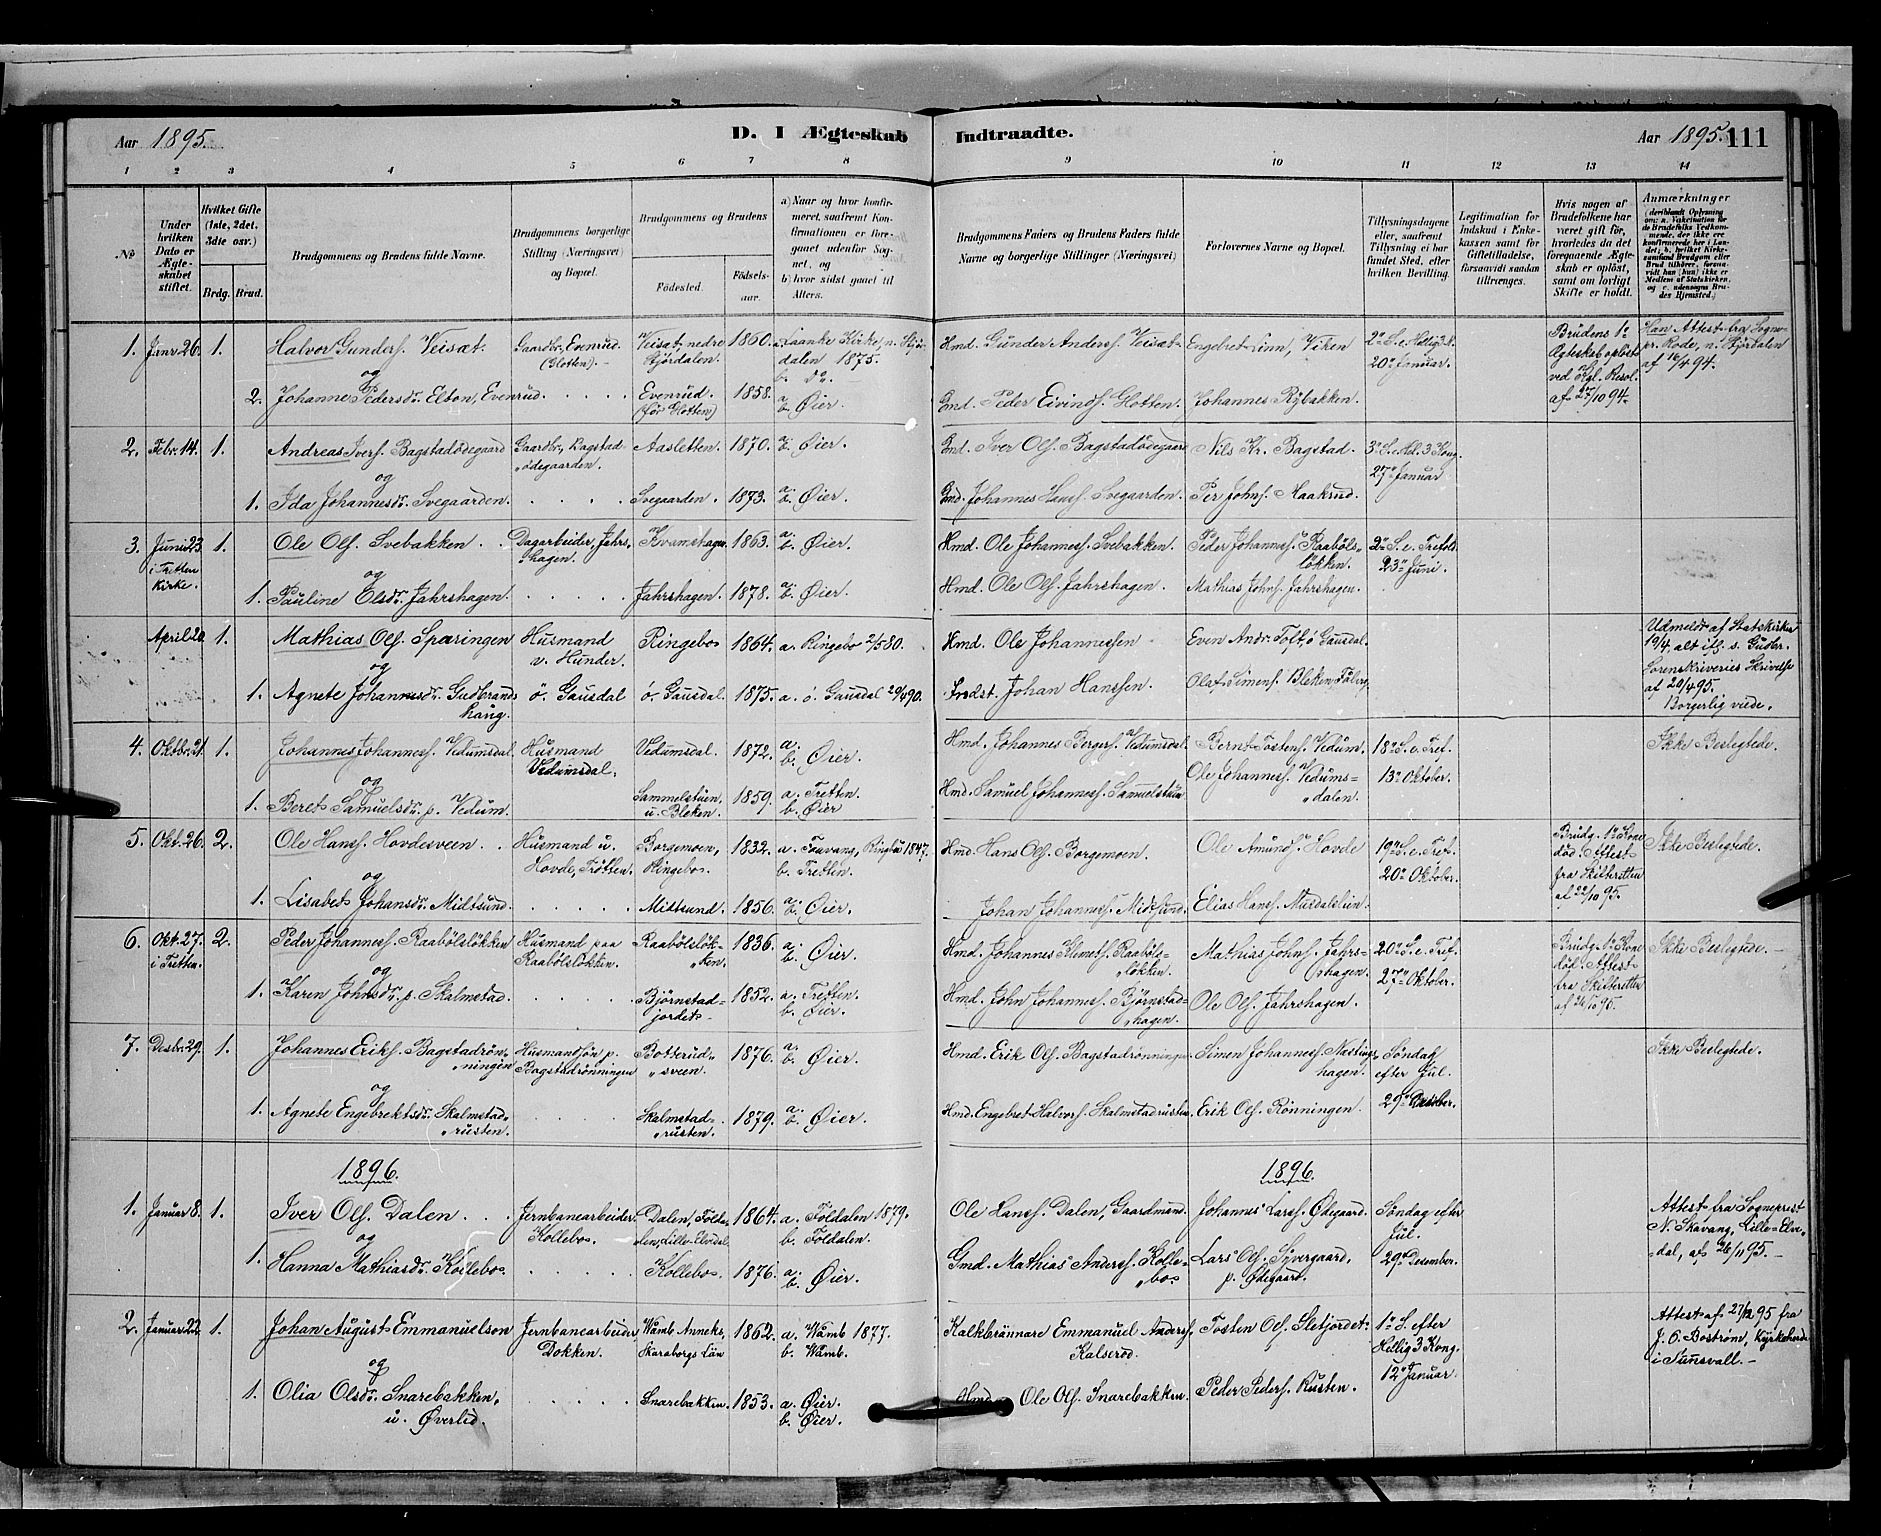 Aar 1895.
D. I Ægteskab Indtraadte.
Aar 1895. 111
1 2 3 4 5 6 7 8 9 10 11 12 13 14
No
Under hvilken Dato er Ægteskabet stiftet.
Hvilket Gifte (1ste, 2det, 3die osv.)
Brdg. Brud.
Brudgommens og Brudens fulde Navne.
Brudgommens borgerlige Stilling (Næringsvei) og Bopel.
Brudgommens og Brudens
Födested. Födselsaar.
a) Naar og hvor konfirmeret, saafremt Konfirmationen er foregaaet udenfor Sognet, og
b) hvor sidst gaaet til Alters.
Brudgommens Faders og Brudens Faders fulde Navne og borgerlige Stillinger (Næringsvei)
Forlovernes Navne og Bopel.
Tillysningsdagene eller, saafremt Tillysning ei har fundet Sted, efter hvilken Bevilling.
Legitimation for Indskud i Enkekassen samt for Giftetilladelse, forsaavidt saadan tiltrænges.
Hvis nogen af Brudefolkene har været gift før, hvorledes da det foregaaende Ægteskab er oplöst, samt om lovligt Skifte er holdt.
Anmærkninger
1. Janr 26. 1. Halvor Gunders. Veisæt. Gaardbr. Evenrud. (Slotten). Veisæt nedre Stjørdalen. 1860. a. Laanke Kirke, n. Stjørdalen 1875. b. Do.
Hmd. Gunder Anders. Veisæt. Engebret Linn, Viken 2. S. e. Hellig 3 K. 20. Januar.
Brudens 1e Ægteskab opløst ved Kgl. Resol. af 27/10 94.
Han Attest fra Sognepr. Rode, n. Stjørdalen af 16/4 94.
og
2. Johanne Pedersdr. Elton, Evenrud. Evenrud. (før Slotten) 1858. a. b. Øier.
Gmd. Peder Eivinds. Slotten. Johannes Rybakken.
2. Febr. 14. 1. Andreas Ivers. Bagstadødegaard Gaardbr. Bagstadødegaarden. Aasletten. 1870. a. b. Øier.
Gmd. Iver Ols. Bagstadødegaard Nils Kr. Bagstad. 3. S. e. Hel. 3 Kong. 27. Januar
og
1. Ida Johannesdr. Svegaarden. Svegaarden. 1873. a. b. Øier.
Gmd. Johannes Hans. Svegaarden. Per Johns. Maakrud.
3. Juni 23. i Tretten Kirke. 1. Ole Ols. Svebakken. Dagarbeider, Jahrshagen. Kvamshagen. 1863. a. b. Øier.
Hmd. Ole Johanness. Svebakken. Peder Johanness. Raabølsløkken. 2. S. e. Trefold. 23. Juni.
og
1. Pauline Olsdr. Jahrshagen. Jahrshagen. 1878. a. b. Øier.
Hmd. Ole Ols. Jahrshagen. Mathias Johns. Jahrshagen.
April 20. 1. Mathias Ols. Sparingen Husmand v. Hunder. Ringebo 1864. a. Ringebo 2/5 80.
Hmd. Ole Johannessen Even Andr. Tofte, ö Gausdal.
Udmeldt af Statskirken 19/4, alt ifl. s. Gudbr. Sorenskriveries Skrivelse af 20/4 95. Borgerlig viede.
og
1. Agnete Johannesdr. Gudbrandshaug. ö. Gausdal ö. Gausdal. 1875. a. ö. Gausdal 20/4 90.
Johan Hanssen. Olaf Simens. Bleken, Faaberg.
4. Oktbr. 21. 1. Johannes Johanness. Vedumsdal. Husmand Vedumsdal. Vedumsdal. 1872. a. b. Øier.
Hmd. Johannes Bergers. Vedumsdal. Bernt Tostens. Vedum. 18. S. e. Tref. 13. Oktober. Ikke Beslegtede.
og
1. Beret Samuelsdr. p. Vedum. Sammelstuen, u. Bleken. 1859. a. Tretten. b. Øier
Hmd. Samuel Johanness. Samuelstuen Ole Johanness. Vedumsdalen.
5. Okt. 26. 2. Ole Hans. Hovdesveen. Husmand u. Hovde, Tretten. Borgemoen, Ringebo. 1832. a. Faavang, Ringebu 1847. b. Tretten.
Hmd. Hans Ols. Borgemoen. Ole Amunds. Hovde 19. S. e. Tref. 20. Oktober.
Brudg. 1e Kone død. Attest fra Skifteretten af 22/10 95. Ikke Beslegtede.
og
1. Lisabet Johansdr. Midtsund. Midtsund. 1856. a. b. Øier.
Johan Johanness. Midtsund. Elias Hans. Musdalslien.
6. Okt. 27. i Tretten. 2. Peder Johanness. Raabølsløkken Husmand paa Raabølsløkken. Raabølsløkken. 1836. a. b. Øier.
Hmd. Johannes Klemets. Raabølsløkken. Mathias Johns. Jahrshagen. 20. S. e. Tref. 27. Oktober.
Brudg. 1e Kone død. Attest fra Skifteretten af 26/10 95. Ikke Beslegtede.
og
1. Karen Johnsdr. p. Skalmstad. Bjørnstadjordet. 1852. a. Tretten. b. Øier.
Hmd. John Johanness. Bjørnstadhagen. Ole Ols. Jahrshagen.
7. Desbr. 29. 1. Johannes Eriks. Bagstadrønningen Husmandsøn p. Bagstadrønningen Botterudsveen. 1876. a. b. Øier.
Hmd. Erik Ols. Bagstadrønningen Simen Johanness. Nastingshagen. Søndag efter Jul. 29. Desember. Ikke Beslegtede.
og
1. Agnete Engebrektsdr. Skalmstadrusten. Skalmstadrusten. 1879. a. b. Øier.
Hmd. Engebret Halvors. Skalmstadrusten. Erik Ols. Rønningen.
1896. 1896.
1. Januar 8. 1. Iver Ols. Dalen. Jernbanearbeider. Kollebo. Dalen, Foldalen, Lille-Elvedal. 1864. a. Foldalen 1879. b. Foldalen.
Ole Hans. Dalen, Gaardmand. Johannes Lars. Ødegaard. Søndag efter Jul. 29. Desember.
Attest fra Sogneprest N. Skavang, Lille-Elvedal, af 26/11 95.
og
1. Hanna Mathiasdr. Kollebo. Kollebo. 1876. a. b. Øier.
Gmd. Mathias Anders. Kollebo. Lars Ols. Syvergaard, p. Ødegaard.
2. Januar 22. 1. Johan August Emmanuelson Jernbanearbeider Dokken. Wamb Anneks, Skaraborgs Län 1862. a. Wamb 1877. b. Wamb.
Kalkbrännare Emmanuel Anders. Kalserød. Tosten Ols. Sletjordet. 1. S. efter Hellig 3 Kong. 12. Januar.
Attest af 27/12 95 fra J. O. Boström, Kyrkoherde i Sunsvall.
og
1. Olia Olsdr. Snarebakken, u. Øverlid. Snarebakken. 1853. a. Øier. b. Øier.
Hmd. Ole Ols. Snarebakken. Peder Peders. Rusten.